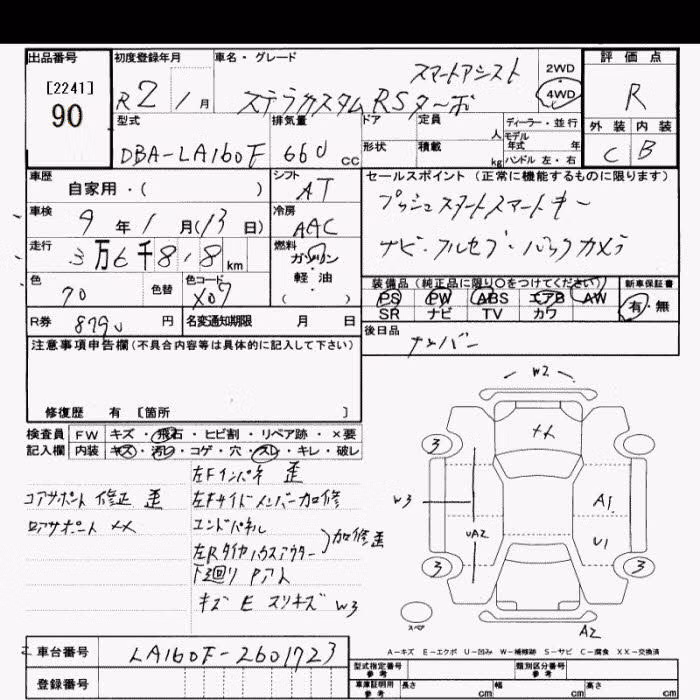 出品番号 初度登録年月 車名・グレード 評価点
[2241]
90
R2年1月 スマートアシスト 2WD
ステラカスタムRSターボ 4WD
R
型式 排気量 ドア 定員 人 ディーラー・並行
モデル年式 年式
形状 積載 kg ハンドル 左・右
外装 内装
DBA-LA160F 660 cc
C B
車歴 自家用・( ) シフト AT セールスポイント(正常に機能するものに限ります)
車検 9年1月(13日) 冷房 AAC プッシュスタートスマートキー
走行 3万6千8,8km 燃料 ガソリン・軽油( ) ナビ・フルセグ・バックカメラ
色 色替 色コード X07 装備品(純正品に限り○をつけてください) 新車保証書
PS PW ABS エアB AW 有・無
SR ナビ TV カワ
R券 円 名変通知期限 月 日 後日品
ナンバー
注意事項申告欄(不具合内容等は具体的に記入して下さい)
修復歴 有 [箇所 ]
検査員記入欄 FW キズ・飛石・ヒビ割・リペア跡・×要
内装 キズ・汚れ・コゲ・穴・スレ・キレ・破レ
左Fインパネ 歪
コアサポート 修正 歪 左Fサイドメンバー加修
ロアサポート ××
エンドパネル
左Rタイヤハウスアウター 加修歪
下回り Pアト
キズ E スリキズ W3
W2
××
3 3 3 3
W3
UA2
A1
U1
スペア
A2
A-キズ E-エクボ U-凹み W-補修跡 S-サビ C-腐食 XX-交換済
車台番号 LA160F-2601723
型式指定番号 参考 類別区分番号 参考
登録番号
車庫証明用 参考 長さ cm 幅 cm 高さ cm